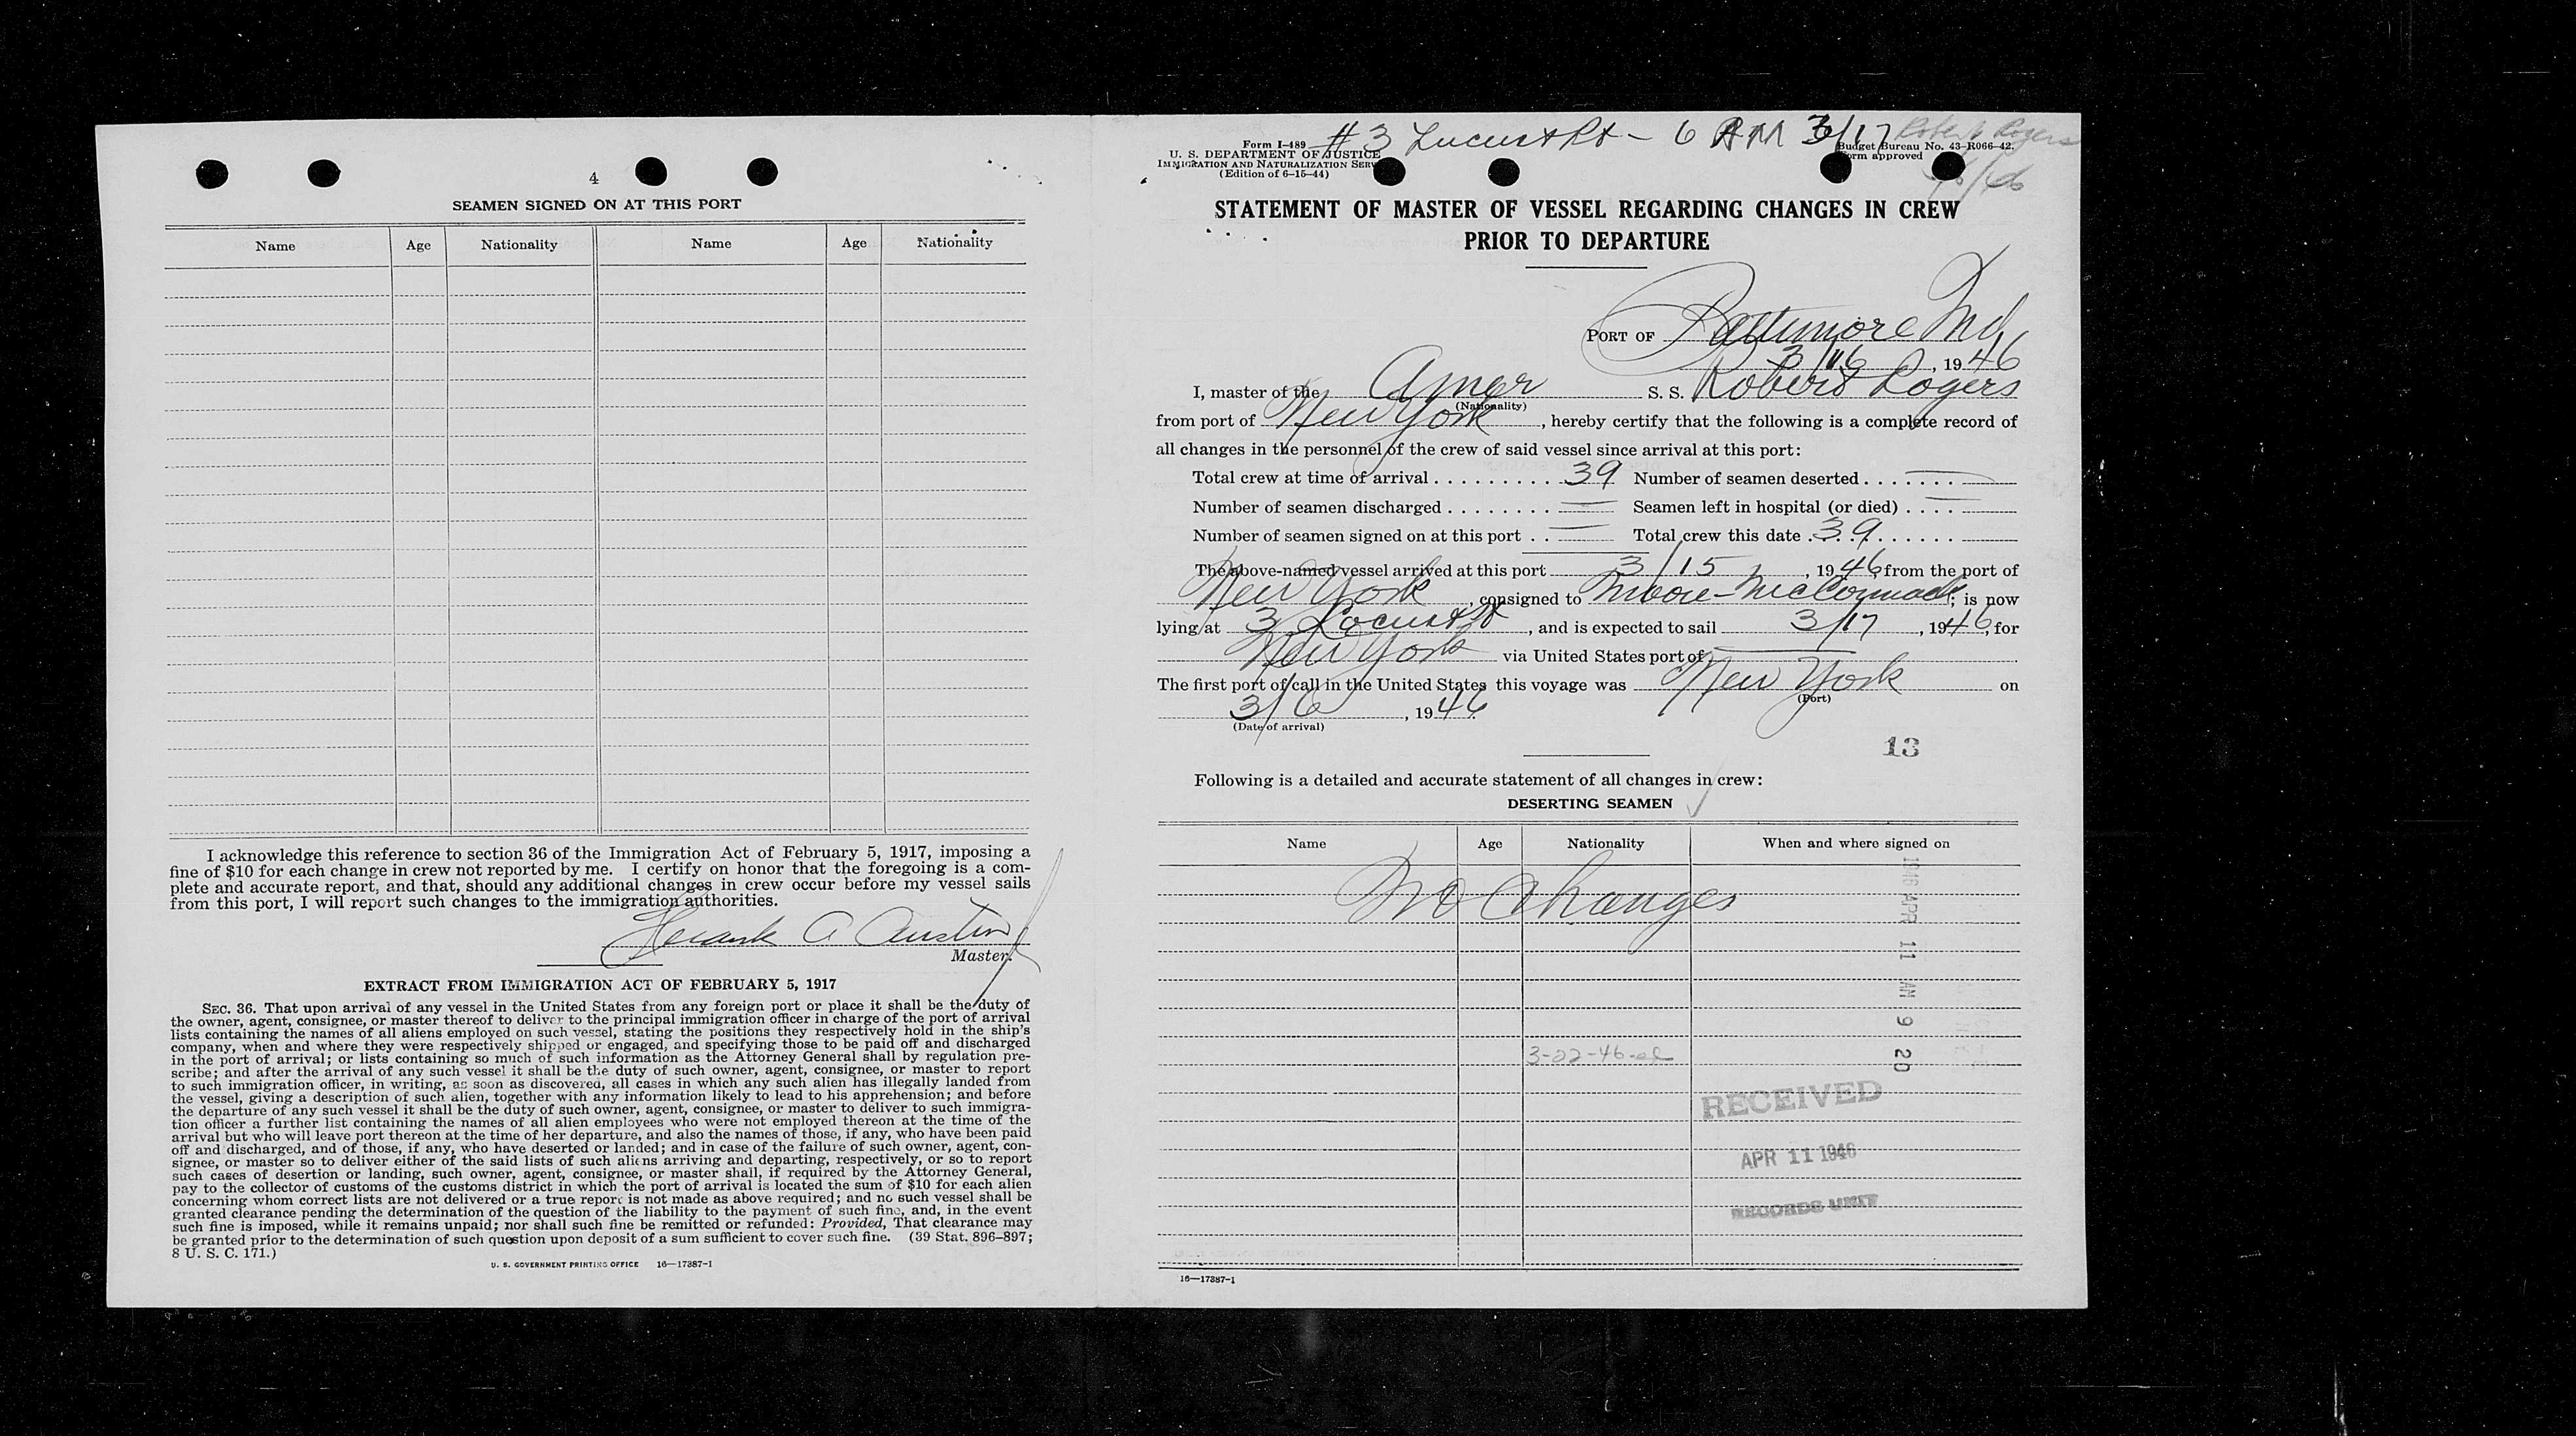 4
SEAMEN SIGNED ON AT THIS PORT
Name Age Nationality Name Age Nationality
I acknowledge this reference to section 36 of the Immigration Act of February 5, 1917, imposing a
fine of $10 for each change in crew not reported by me. I certify on honor that the foregoing is a com-
plete and accurate report, and that, should any additional changes in crew occur before my vessel sails
from this port, I will report such changes to the immigration authorities.
Frank A Austin
Master.
EXTRACT FROM IMMIGRATION ACT OF FEBRUARY 5, 1917
SEC. 36. That upon arrival of any vessel in the United States from any foreign port or place it shall be the duty of
the owner, agent, consignee, or master thereof to deliver to the principal immigration officer in charge of the port of arrival
lists containing the names of all aliens employed on such vessel, stating the positions they respectively hold in the ship's
company, when and where they were respectively shipped or engaged, and specifying those to be paid off and discharged
in the port of arrival; or lists containing so much of such information as the Attorney General shall by regulation pre-
scribe; and after the arrival of any such vessel it shall be the duty of such owner, agent, consignee, or master to report
to such immigration officer, in writing, as soon as discovered, all cases in which any such alien has illegally landed from
the vessel, giving a description of such alien, together with any information likely to lead to his apprehension; and before
the departure of any such vessel it shall be the duty of such owner, agent, consignee, or master to deliver to such immigra-
tion officer a further list containing the names of all alien employees who were not employed thereon at the time of the
arrival but who will leave port thereon at the time of her departure, and also the names of those, if any, who have been paid
off and discharged, and of those, if any, who have deserted or landed; and in case of the failure of such owner, agent, con-
signee, or master so to deliver either of the said lists of such aliens arriving and departing, respectively, or so to report
such cases of desertion or landing, such owner, agent, consignee, or master shall, if required by the Attorney General,
pay to the collector of customs of the customs district in which the port of arrival is located the sum of $10 for each alien
concerning whom correct lists are not delivered or a true report is not made as above required; and no such vessel shall be
granted clearance pending the determination of the question of the liability to the payment of such fine, and, in the event
such fine is imposed, while it remains unpaid; nor shall such fine be remitted or refunded: Provided, That clearance may
be granted prior to the determination of such question upon deposit of a sum sufficient to cover such fine. (39 Stat. 896–897;
8 U. S. C. 171.)
U. S. GOVERNMENT PRINTING OFFICE 16—17387-1
#3 Locust Pt - 6 AM 3/17 Robert Rogers
Form I-489
U. S. DEPARTMENT OF JUSTICE
IMMIGRATION AND NATURALIZATION SERV
(Edition of 6-15-44)
Budget Bureau No. 43-R066-42.
Form approved
STATEMENT OF MASTER OF VESSEL REGARDING CHANGES IN CREW
PRIOR TO DEPARTURE
PORT OF Baltimore Md
3/16, 1946
I, master of the Amer S. S. Robert Rogers
(Nationality)
from port of New York, hereby certify that the following is a complete record of
all changes in the personnel of the crew of said vessel since arrival at this port:
Total crew at time of arrival . . . . . . . . . . 39 Number of seamen deserted . . . . . . . —
Number of seamen discharged . . . . . . . . — Seamen left in hospital (or died) . . . . —
Number of seamen signed on at this port . . — Total crew this date . 39 . . . . . .
The above-named vessel arrived at this port 3/15, 1946, from the port of
New York, consigned to Moore-McCormack; is now
lying at 3 Locust Pt, and is expected to sail 3/17, 1946, for
New York via United States port of —
The first port of call in the United States this voyage was New York on
(Port)
3/6, 1946
(Date of arrival)
13
Following is a detailed and accurate statement of all changes in crew:
DESERTING SEAMEN
Name Age Nationality When and where signed on
No Changes
1946 APR 11 AM 9 20
3-22-46-el
RECEIVED
APR 11 1946
RECORDS UNIT
16—17387-1